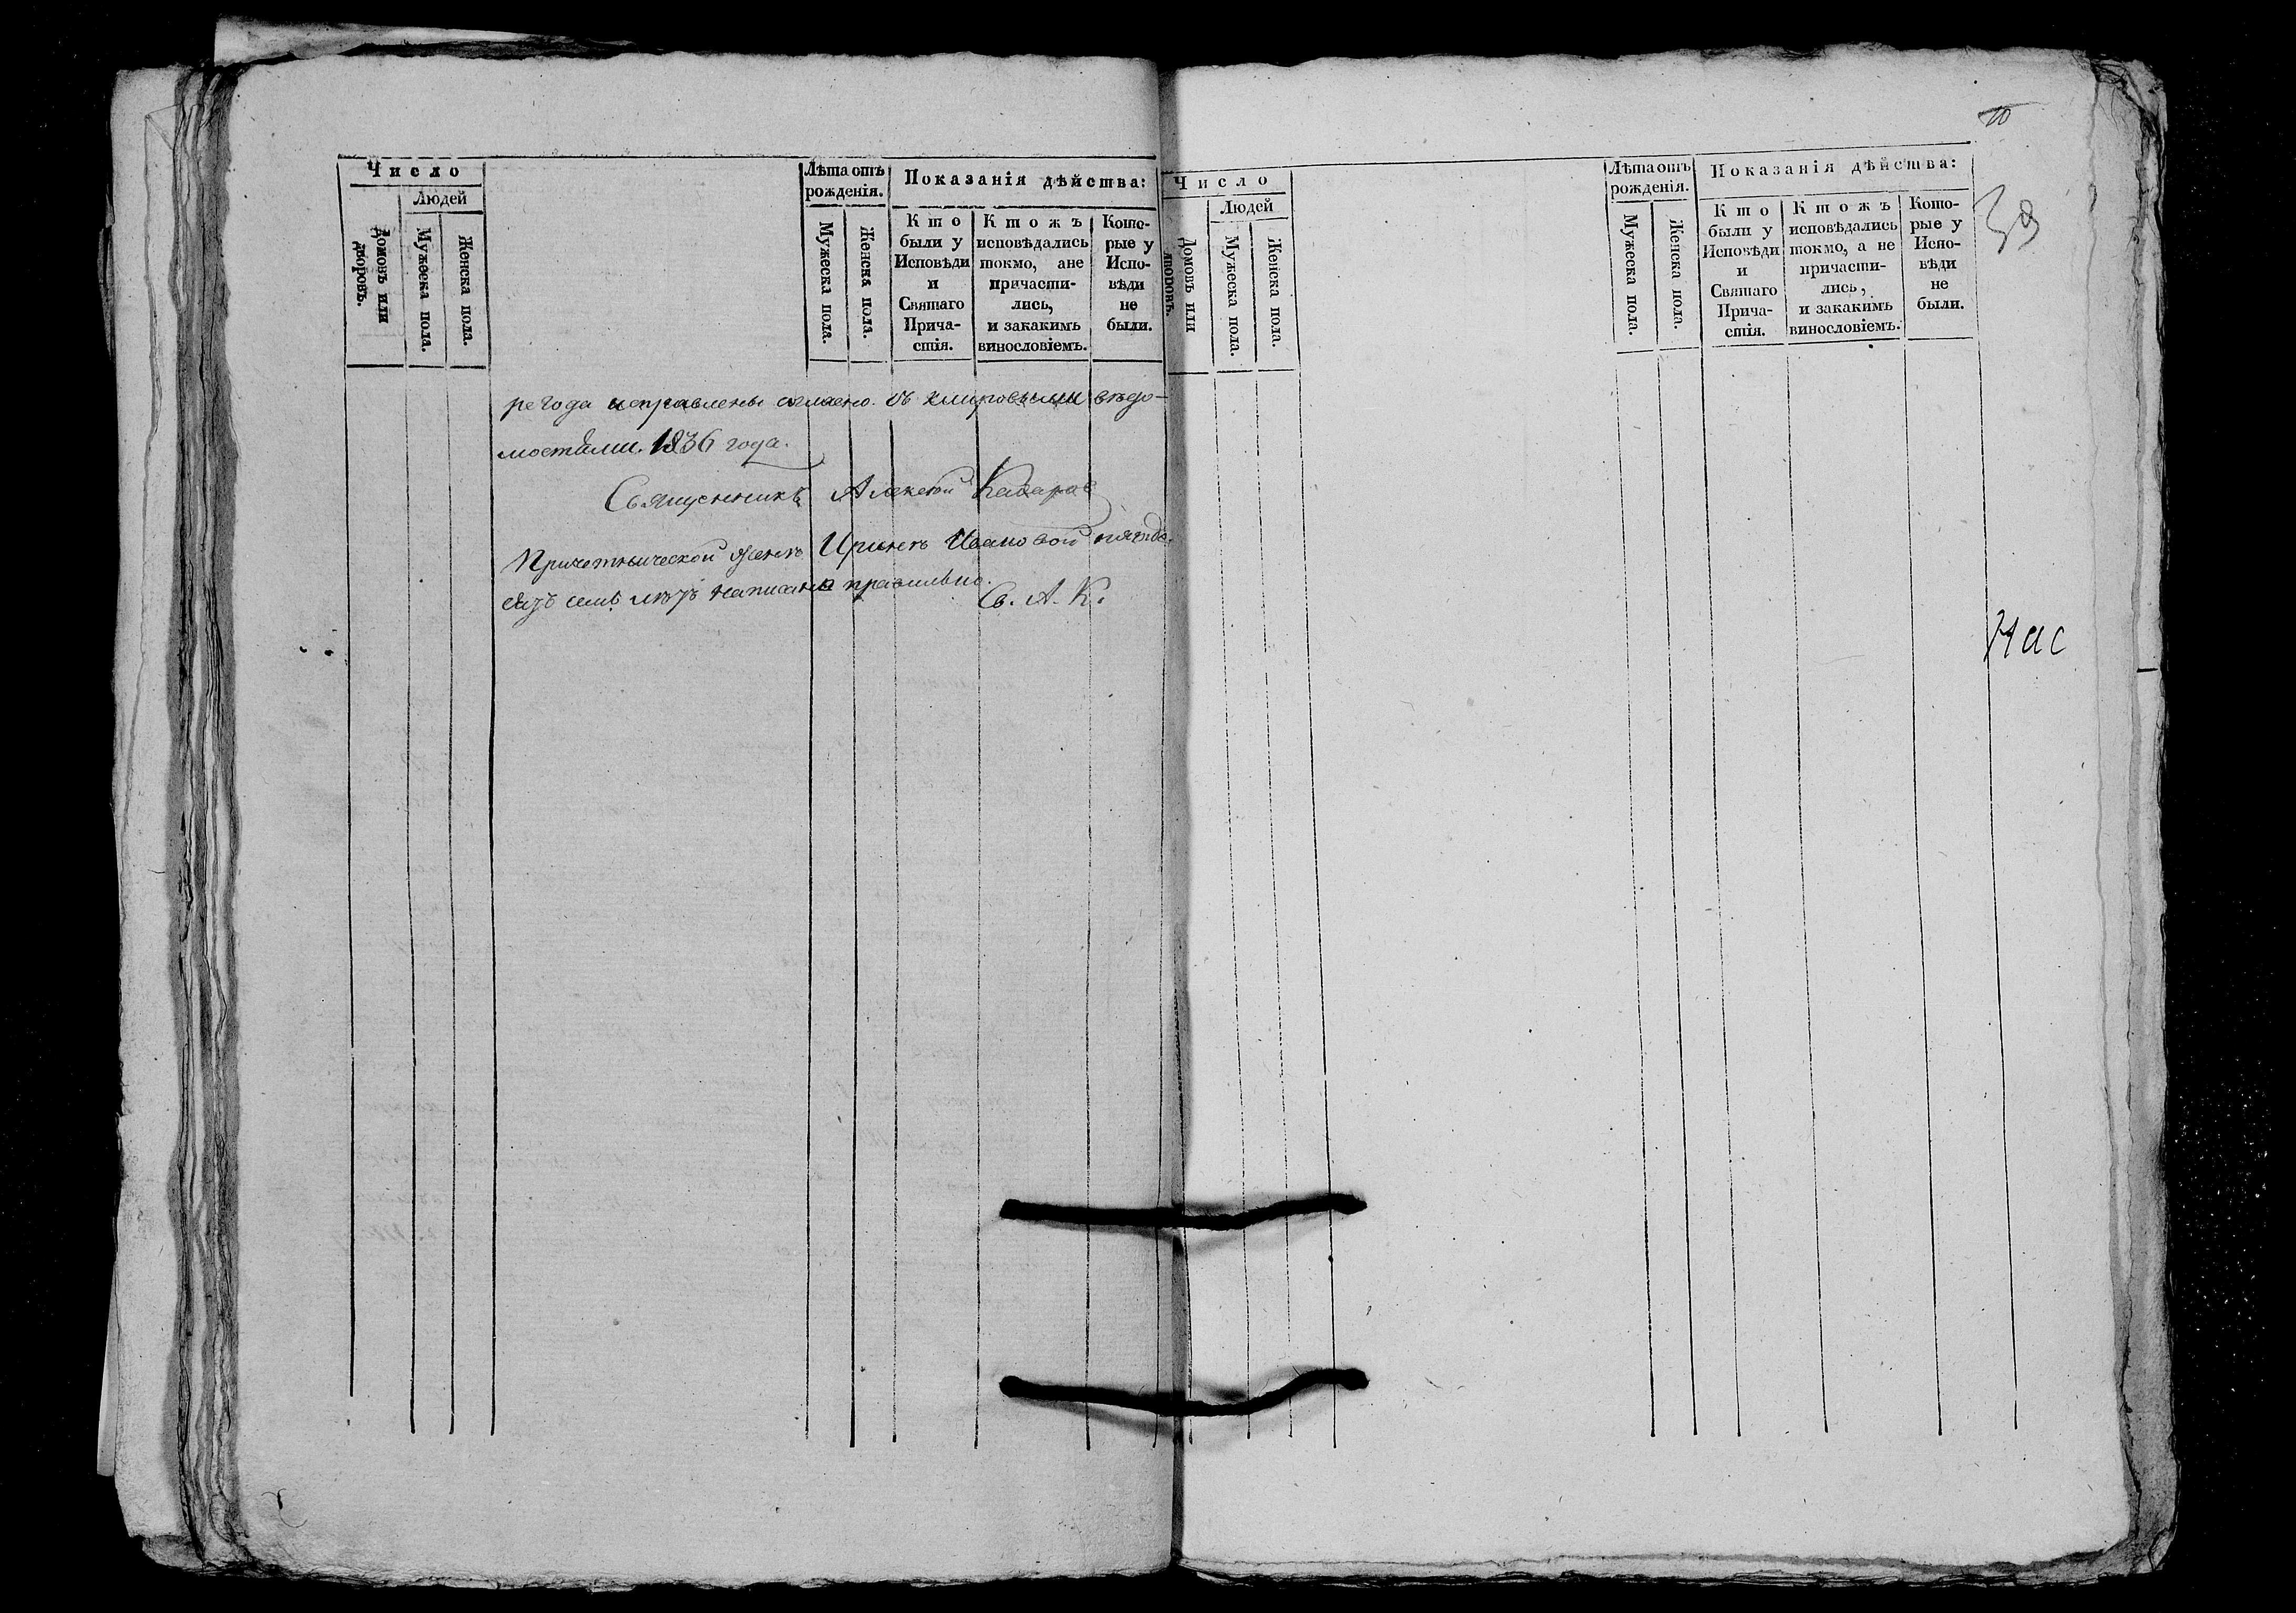 Число
Людей
Домовъ или дворовъ.
Мужеска пола.
Женска пола.
Лѣта отъ рожденія.
Мужеска пола.
Женска пола.
Показанія дѣйства:
Кто были у Исповѣди и Святаго Причастія.
Ктожъ исповѣдались токмо, ане причастились, и закакимъ винословіемъ.
Которые у Исповѣди не были.
ре года исправлены согласно съ клировыми вѣдо-
мостями 1836 года.
Священникъ Алексей
Причетнической женѣ Иринѣ Ивановой пятьде-
сятъ семь лѣтъ написано правильно.
Св. А. К.
Число
Людей
Домовъ или дворовъ.
Мужеска пола.
Женска пола.
Лѣта отъ рожденія.
Мужеска пола.
Женска пола.
Показанія дѣйства:
Кто были у Исповѣди и Святаго Причастія.
Ктожъ исповѣдались токмо, а не причастились, и закакимъ винословіемъ.
Которые у Исповѣди не были.
39
нас